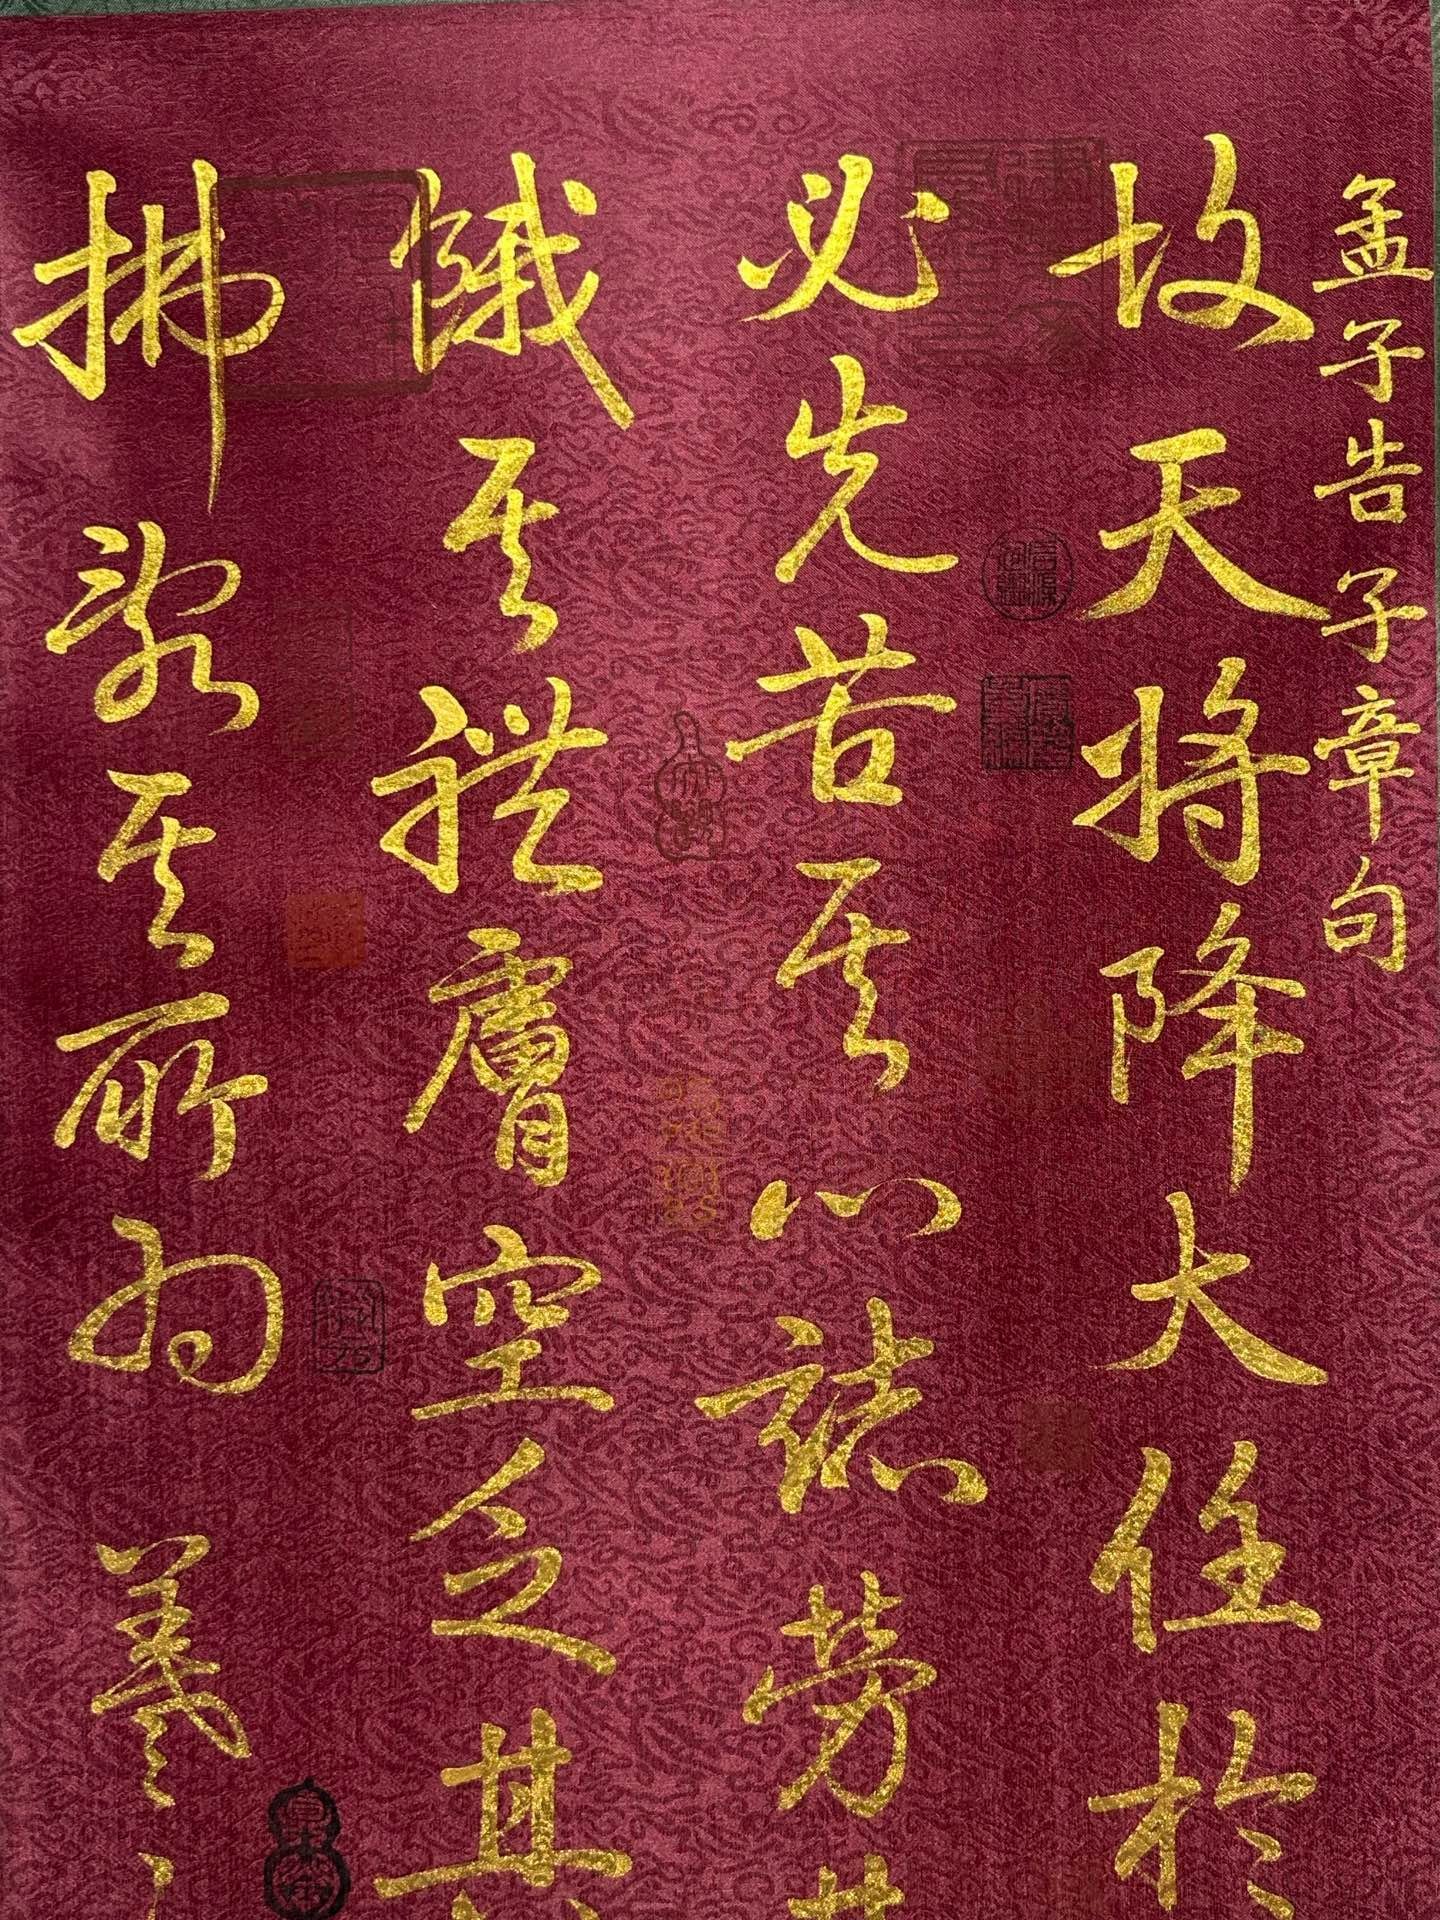 孟子告子章句
故天将降大任於
必先苦其心誌劳
餓其體膚空乏其
拂亂其所為 羲